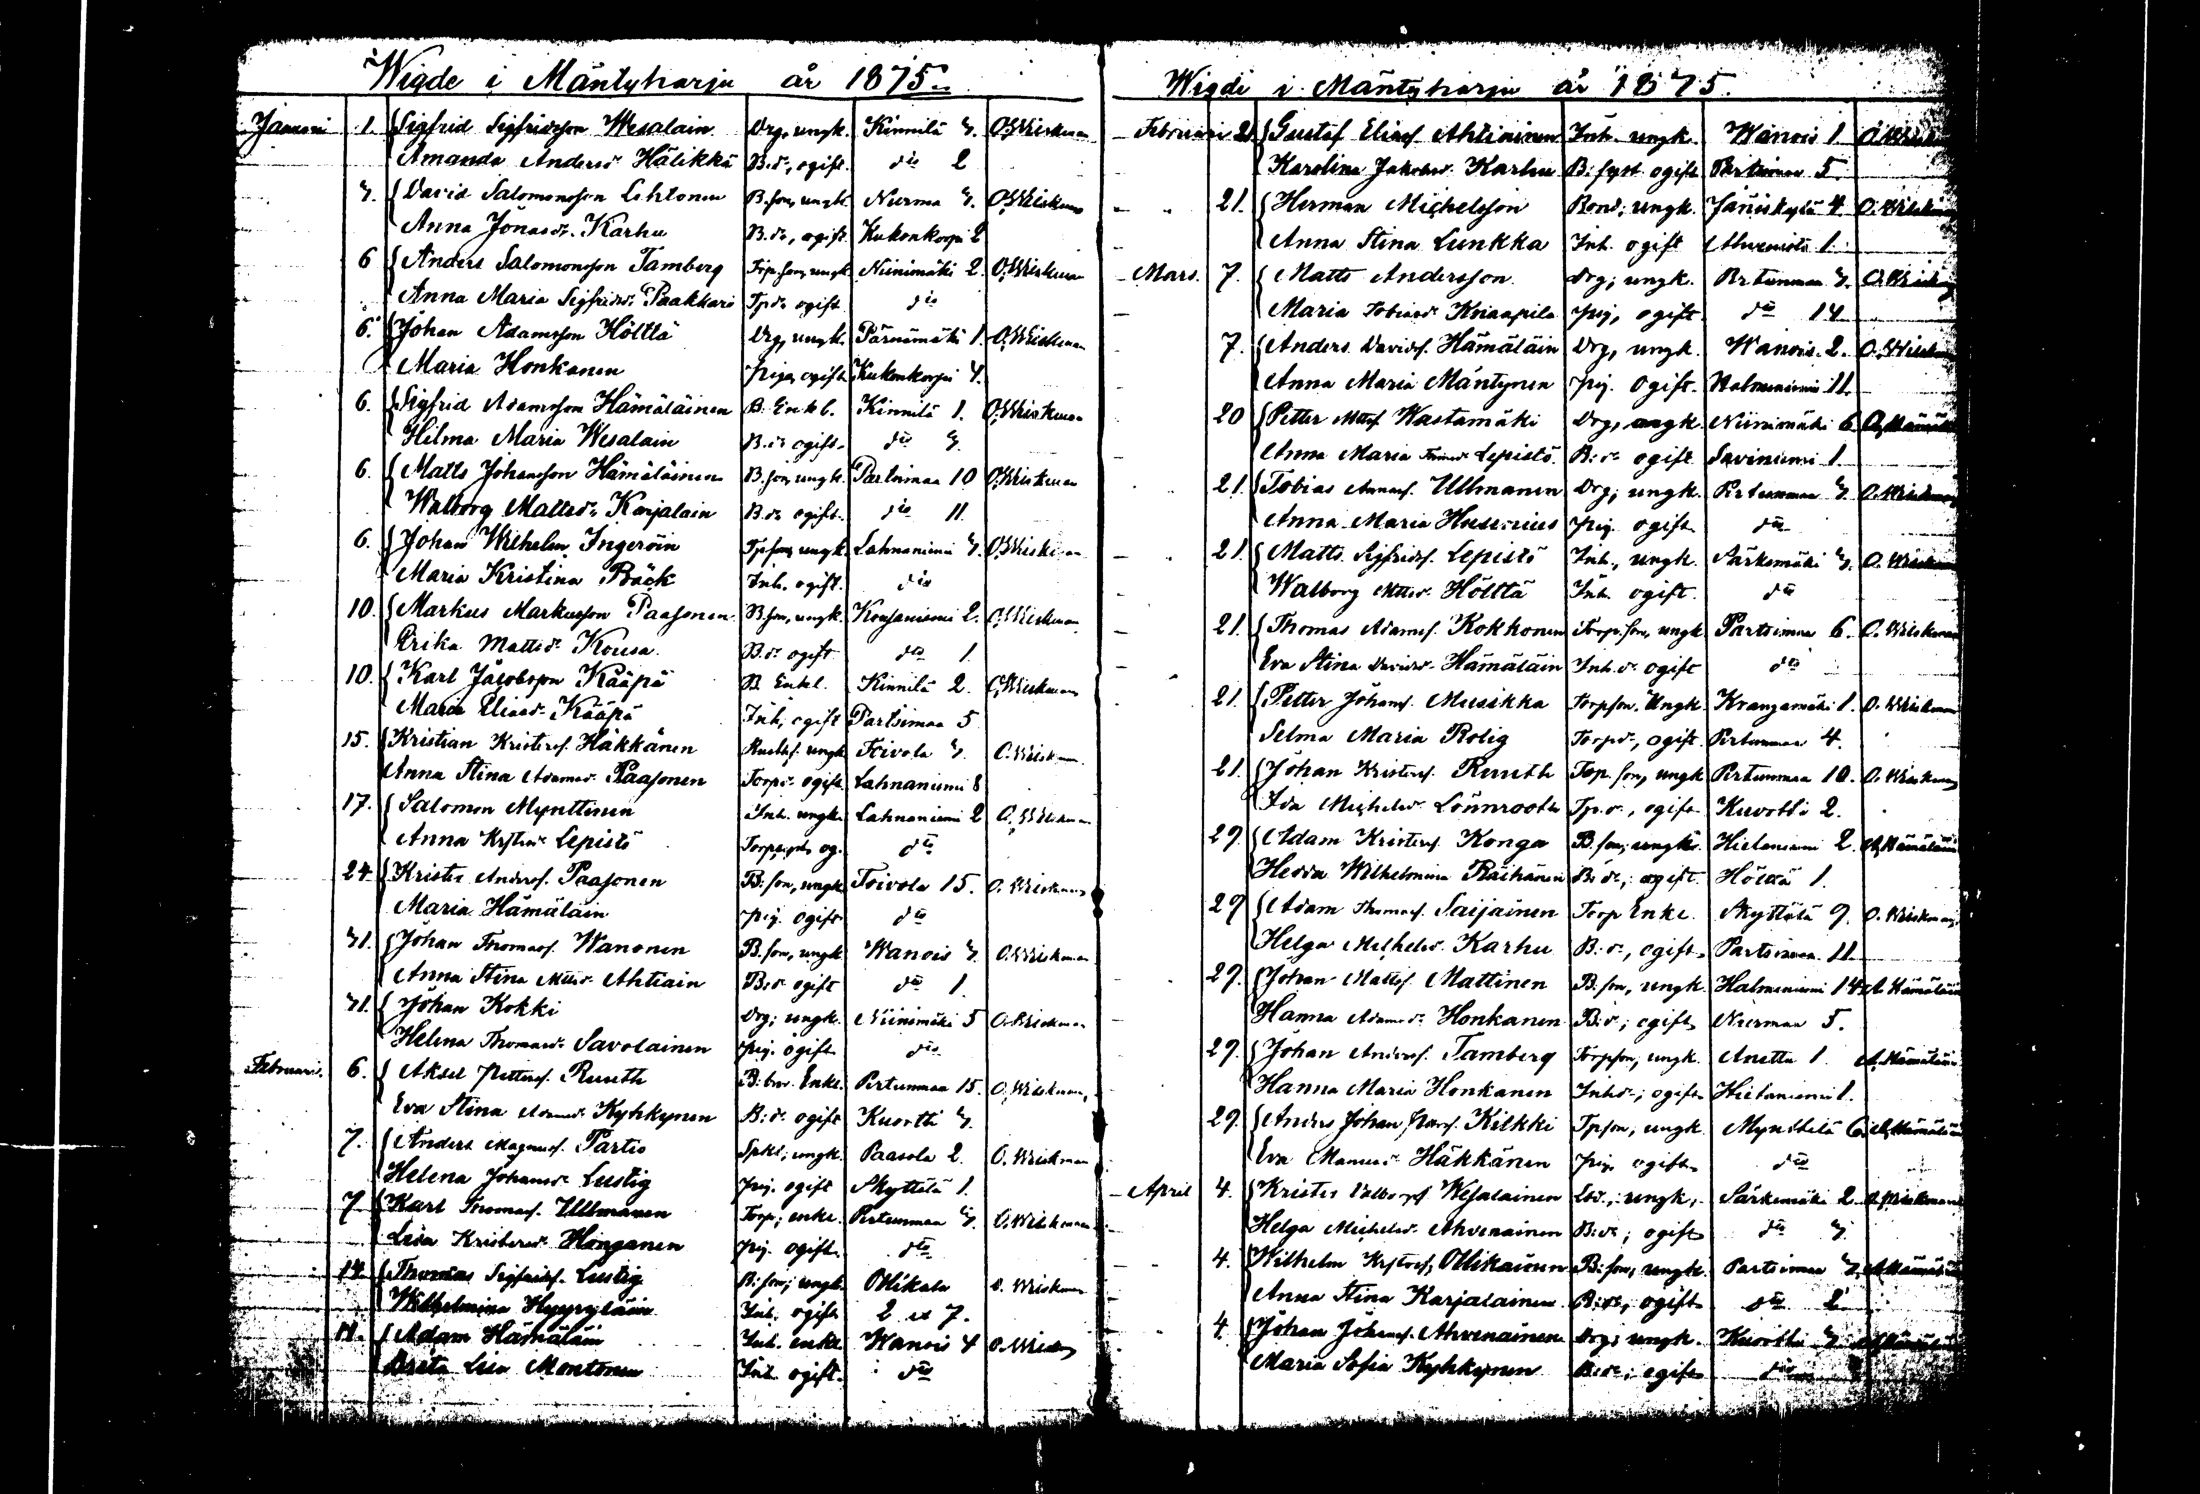 Wigde i Mäntyharju år 1875.
Januari 1. Sigfrid Sigfridsson Wesalain Drg, ungk. Kinnilä 3. O. Weiskman
Amanda Andersdr Hälikkä B.dr, ogift. dto 2
3. David Salomonsson Lehtonen B.son, ungk. Nurma 3. O. Weiskman
Anna Jonasdr. Karhu B.dr, ogift Kukonkorpi 2
6 Anders Salomonsson Tamberg Torp.son, ungk. Niinimäki 2. O. Weiskman
Anna Maria Sigfridsdr. Paakkari Tp.dr ogift dto
6. Johan Adamsson Hölttä Drg, ungk. Pärnämäki 1. O. Weiskman
Maria Honkanen piga, ogift Kukonkorpi 4.
6. Sigfrid Adamsson Hämäläinen B. Enkl. Kinnilä 1. O. Weiskman
Hilma Maria Wesalain B.dr ogift dto 3.
6. Matts Johansson Hämäläinen B.son, ungk. Partsimaa 10 O. Weiskman
Walborg Mattsdr. Karjalain B.dr ogift. dto 11.
6. Johan Wilhelm Ingeröin Tp.son, ungk. Lahnaniemi 3. O. Weiskman
Maria Kristina Bäck Inh. ogift. dto
10. Markus Markusson Paasonen B.son, ungk. 2. O. Weiskman
Erika Mattsdr Kousa B.dr ogift dto 1.
10. Karl Jacobsson Kääpä B. Enkl. Kinnilä 2. O. Weiskman
Maria Eliasdr. Kääpä Inh, ogift Partsimaa 5
15. Kristian Kristersf. Häkkänen ungk Toivola 3. O. Weiskman
Anna Stina Adamsdr. Paasonen Torpdr ogift Lahnaniemi 8
17. Salomon Mynttinen Inh. ungk. Lahnaniemi 2 O. Weiskman
Anna Lepistö og. dto
24. Krister Andersf. Paasonen B.son, ungk Toivola 15. O. Weiskman
Maria Hämäläin pig. ogift dto
31. Johan Thomasf. Wanonen B.son, ungk Wanois 3. O. Weiskman
Anna Stina Mttsdr. Ahtiain B.dr ogift dto 1.
31. Johan Kokki Drg; ungk. Niinimäki 5 O. Weiskman
Helena Thomasdr. Savolainen pig. ogift dto
Februari. 6. Aksel Pettersf. Ruuth Enkl. Pertunmaa 15. O. Weiskman
Eva Stina Adamsdr. Kyhkynen B.dr ogift Kuortti 3.
7. Anders Magnusf. Partio ungk. Paasola 2. O. Weiskman
Helena Johansdr. Lustig pig. ogift Skyttälä 1.
7 Karl Thomasf. Ullmanen Torp; enkl. Pertunmaa 3. O. Weiskman
Lisa Kristersdr. Honganen pig. ogift. dto
14. Thomas Sigfridsf. Lustig B.son, ungk Ollikala O. Weiskman
Wilhelmina Hyyryläin Inh. ogift 2 et 7.
14. Adam Hämäläin Inh. enkl. Wanois 4 O. Weiskman
Breta Lisa Montonen Inh. ogift. dto
Wigde i Mäntyharju år 1875.
Februari 21. Gustaf Eliasf. Ahtiainen Inh. ungk. Wanois 1
Karolina Jakobsdr. Karhu ogift Partsimaa 5.
21. Herman Michelsson Bond; ungk. Jäniskylä 4. O. Weiskman
Anna Stina Lunkka Inh. ogift Ahvenisto 1.
Mars. 7. Matts Andersson Drg; ungk. Pertunmaa 3. O. Weiskman
Maria Tobiasdr. Knaapila pig, ogift. dto 14
7. Anders Davidsf. Hämäläin Drg, ungk. Wanois. 2. O. Weiskman
Anna Maria Mäntynen pig. ogift. Halmeniemi 11.
20 Petter Mttsf. Wastamäki Drg, ungk. Niinimäki 6.
Anna Maria Lepistö B.dr ogift Saviniemi 1.
21. Tobias Ullmanen Drg; ungk. Pertunmaa 3. O. Weiskman
Anna Maria Husenius pig. ogift dto
21. Matts Sigfridsf. Lepistö Inh., ungk. Särkemäki 3. O. Weiskman
Walborg Mttsdr. Hölttä Inh. ogift. dto
21. Thomas Adamsf. Kokkonen Torp.son, ungk Partsimaa 6. O. Weiskman
Eva Stina Davidsdr. Hämäläin Inh.dr ogift dto
21. Petter Johansf. Musikka Torpson. Ungk. Krangamäki 1. O. Weiskman
Selma Maria Rolig Torpdr., ogift. Pertunmaa 4.
21. Johan Kristersf. Ruuth Torp.son, ungk Pertunmaa 10. O. Weiskman
Ida Michelsdr. Lönnrooth Tp.dr., ogift Kuortti 2.
29. Adam Kristersf. Konga B.son, ungk. Hietaniemi 2. A. Hämäläin
Hedda Wilhelmina Räihänen B.dr, ogift. Hölttä 1.
29 Adam Thomasf. Saijainen Torp Enkl. Skyttälä 9. O. Weiskman
Helga Michelsdr. Karhu B.dr, ogift. Partsimaa 11.
29. Johan Mattsf. Mattinen B.son, ungk. Halmeniemi 14. A. Hämäläin
Hanna Adamsdr. Honkanen B.dr; ogift Nurmaa 5.
29. Johan Andersf. Tamberg Torpson, ungk. Anetta 1. A. Hämäläin
Hanna Maria Honkanen Inhdr; ogift Hietaniemi 1.
29. Anders Johan Kilkki Tpson, ungk. Mynttilä 6. A. Hämäläin
Eva Häkkänen pig. ogift dto
April 4. Krister Wesalainen ungk, Särkemäki 2. O. Weiskman
Helga Michelsdr. Ahvenainen B.dr; ogift dto 3.
4. Wilhelm Ollikainen B.son, ungk. Partsimaa 3. A. Hämäläin
Anna Stina Karjalainen B.dr, ogift dto 2
4. Johan Johansf. Ahvenainen Drg; ungk. Kuortti 3. A. Hämäläin
Maria Sofia Kyhkynen B.dr; ogift dto